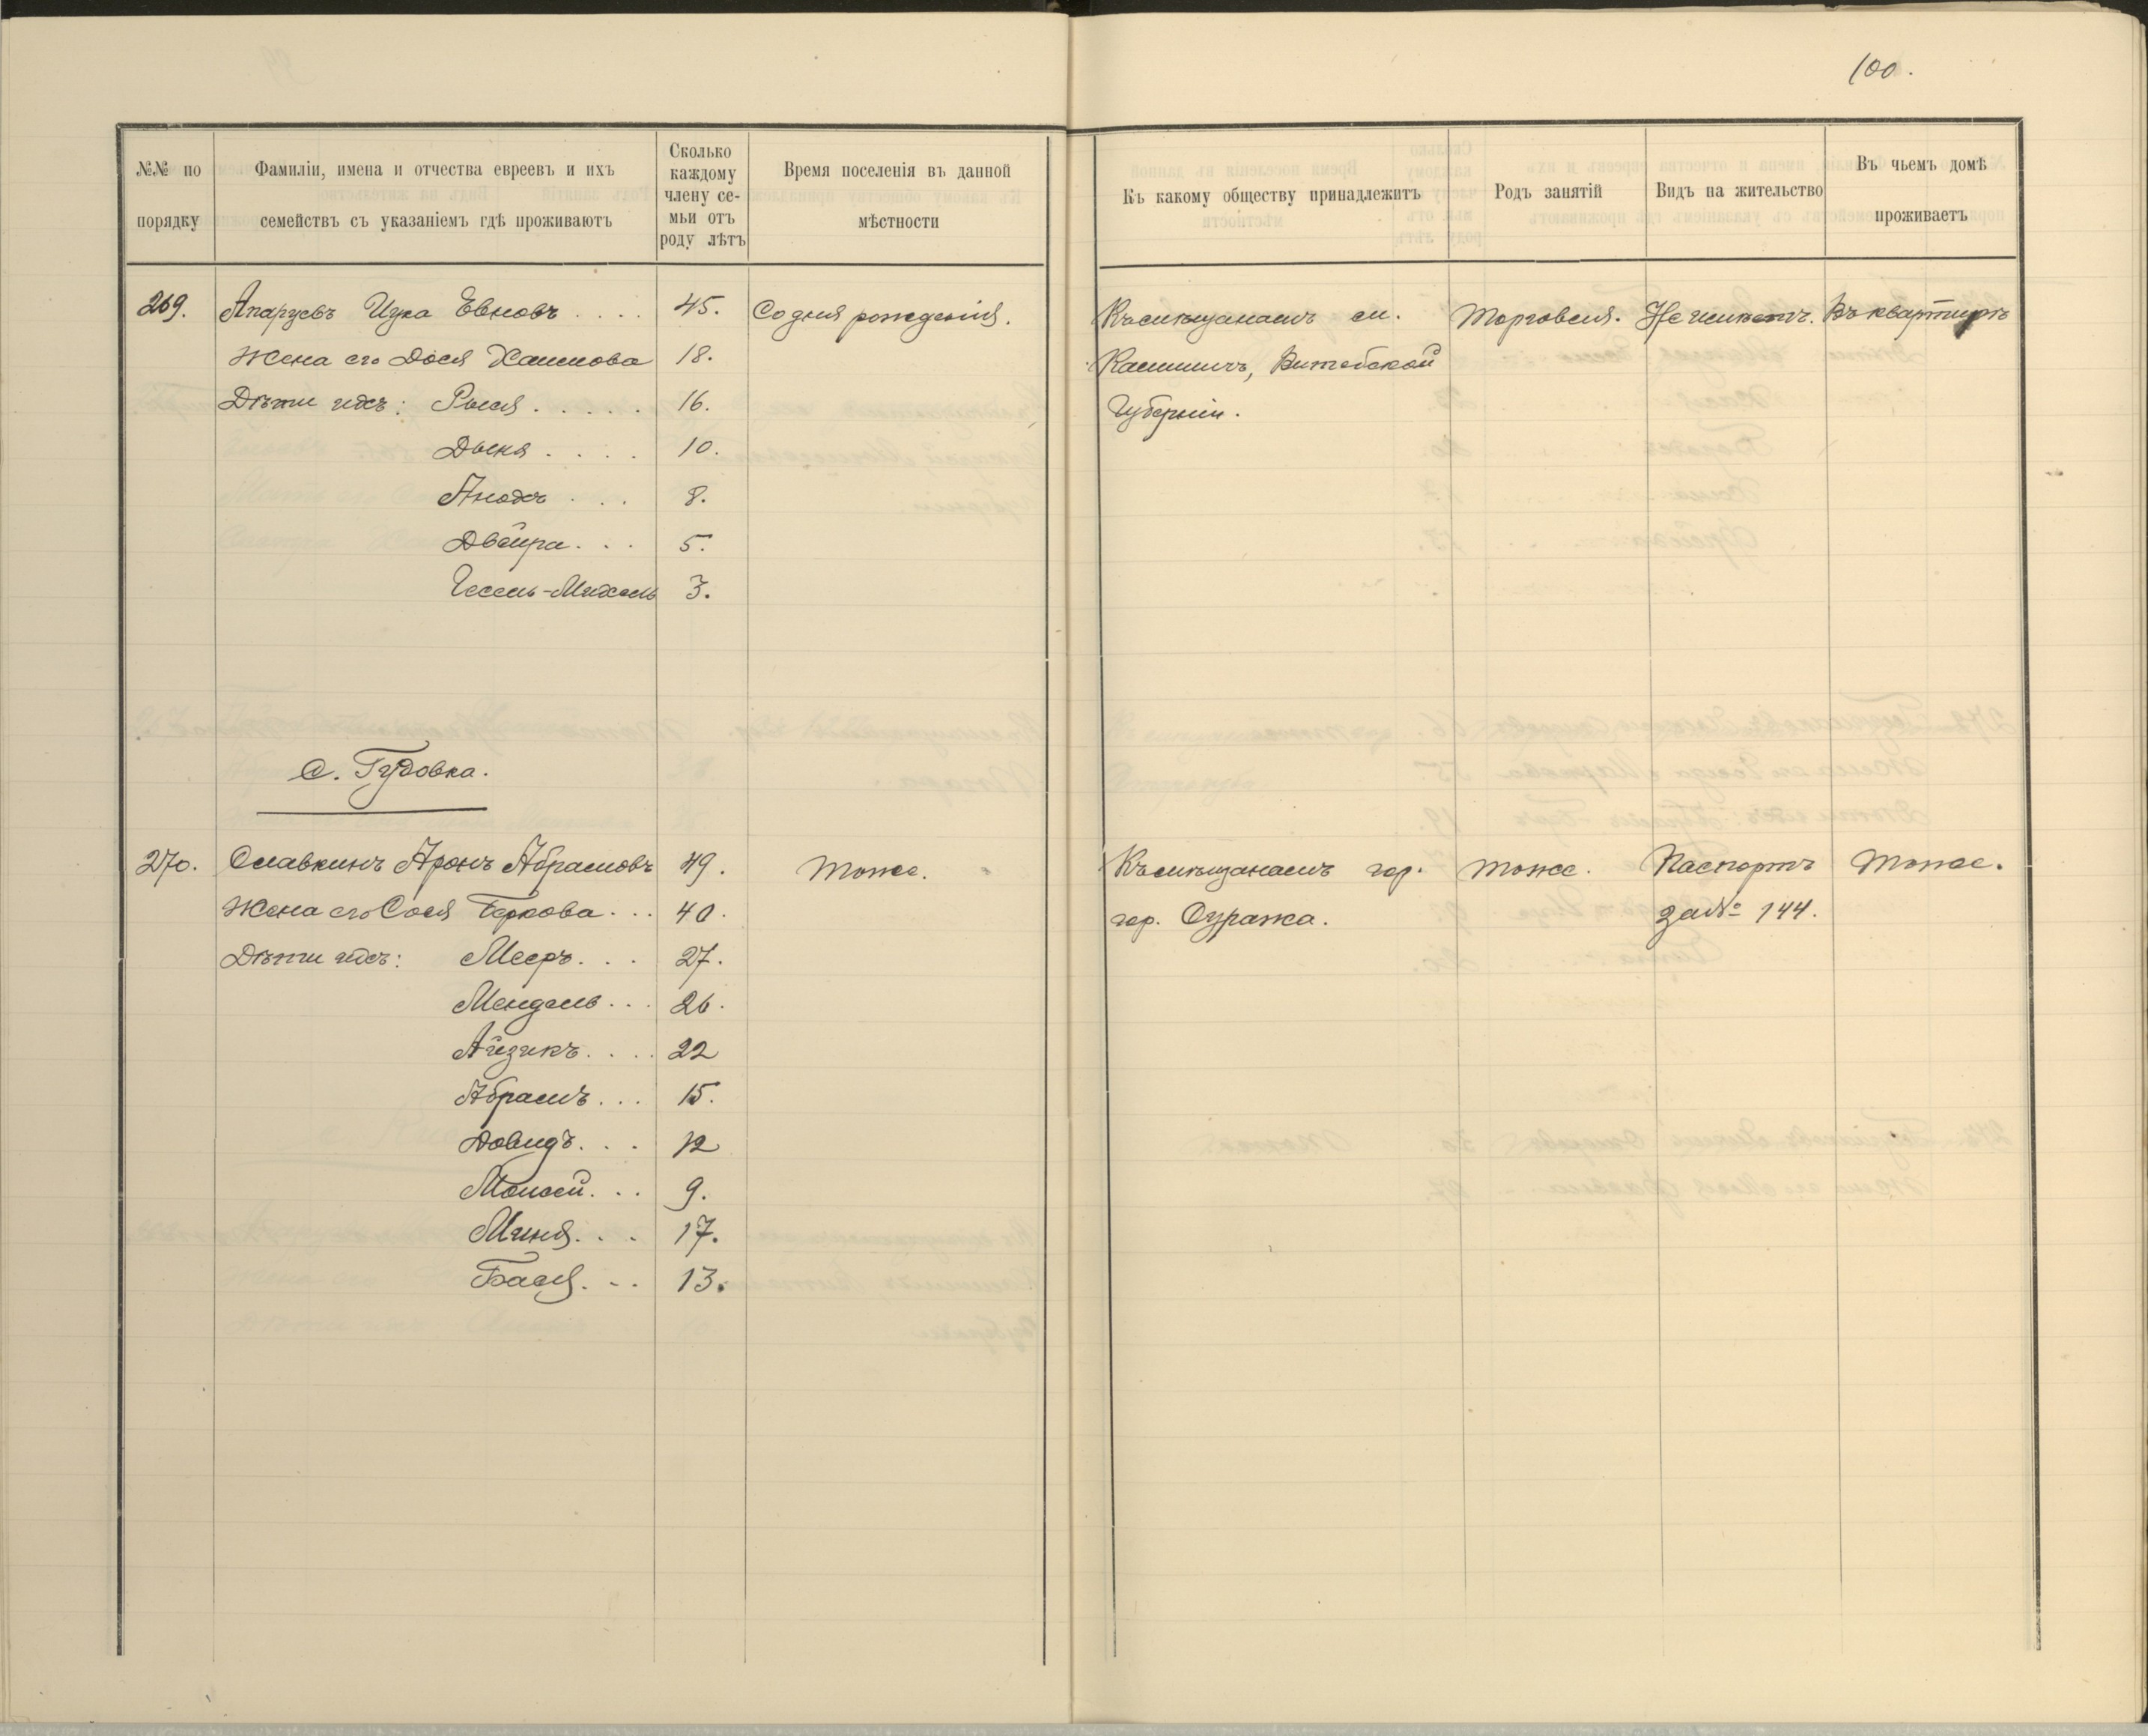 100.
№№ по порядку
Фамиліи, имена и отчества евреевъ и ихъ семействъ съ указаніемъ гдѣ проживаютъ
Сколько каждому члену се-мьи отъ роду лѣтъ
Время поселенія въ данной мѣстности
Къ какому обществу принадлежитъ
Родъ занятій
Видъ на жительство
Въ чьемъ домѣ проживаетъ
269. Апаруевъ Ицка Евновъ . . . . 45. Со дня рожденія. Къ мѣщанамъ м. Торговля. Не имѣетъ. Въ квартирѣ
Жена его Дося Хаимова 18. Витебской
Дѣти ихъ: Рыся . . . . . 16. Губерніи.
Дыня . . . . 10.
Анодъ . . . 8.
Двейра . . . 5.
Гессель-Михель 3.
С. Гудовка.
270. Славкинъ Аронъ Абрамовъ 49. Тоже. Къ мѣщанамъ гор. Тоже. Паспортъ Тоже.
Жена его Сося Беркова . . . 40. гор. Суража. за № 144.
Дѣти ихъ: Мееръ . . . 27.
Мендель . . . 26.
Айзикъ . . . . 22
Абрамъ . . . 15.
Довидъ . . . 12
Моисей . . . 9.
Миня . . . 17.
Бася . . . 13.